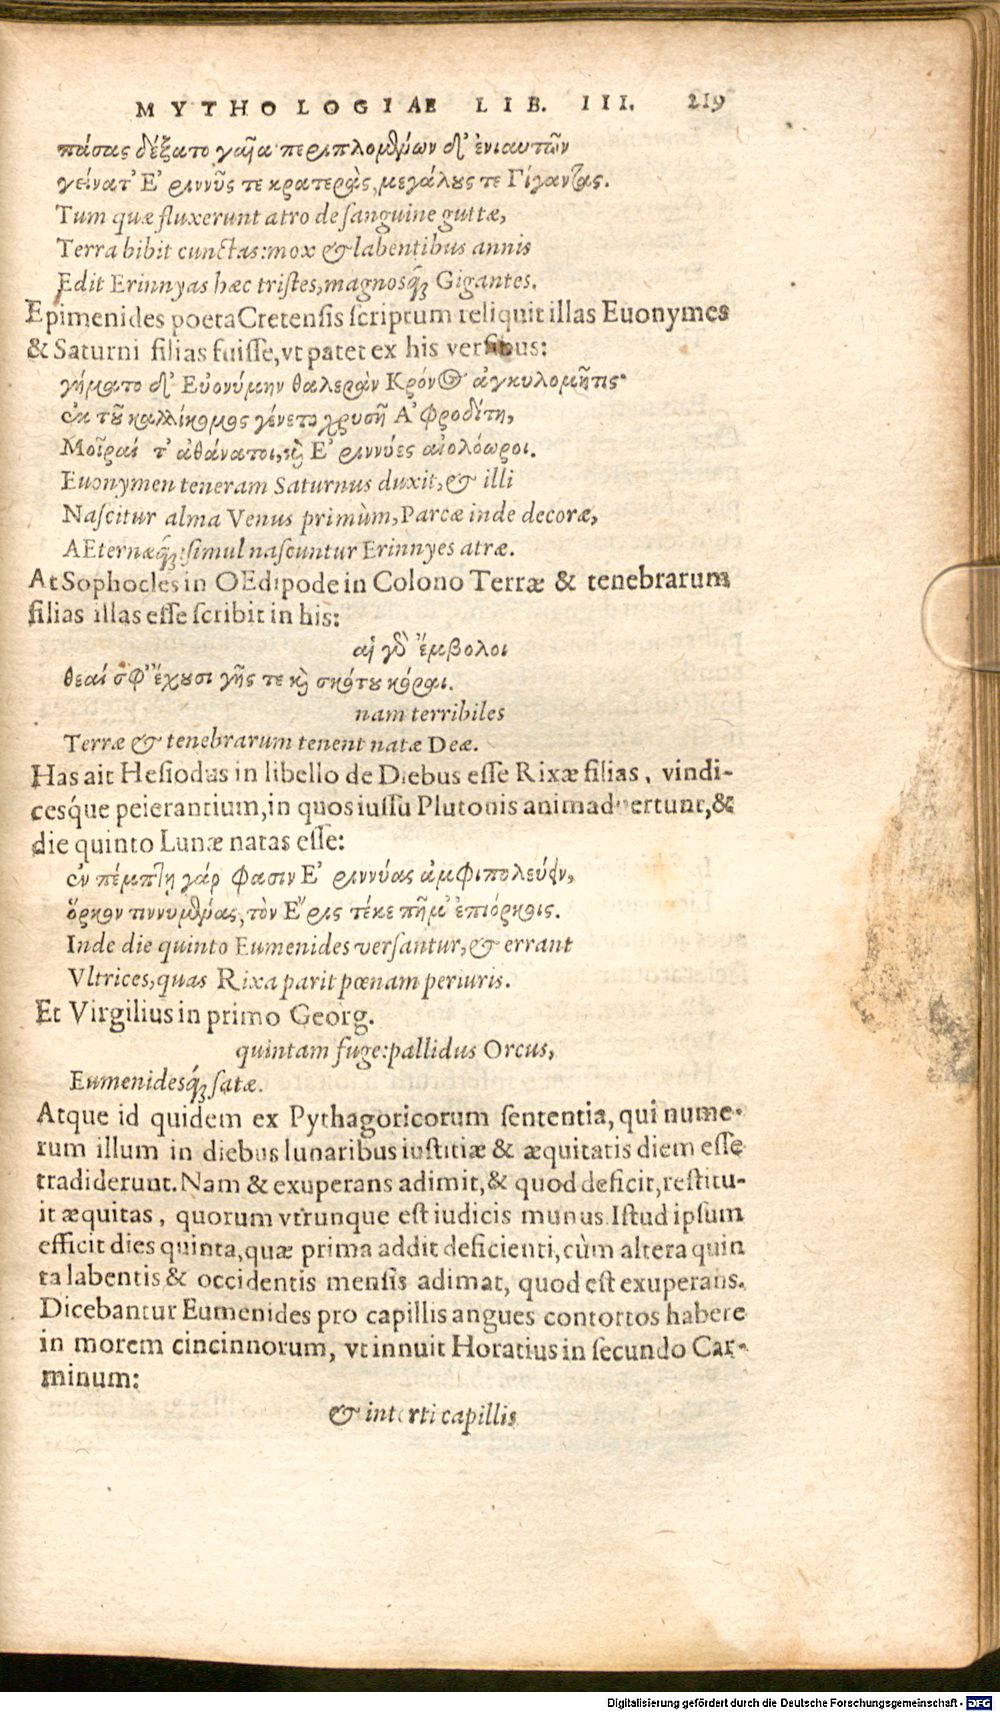 MYTHOLOGIAE LIB. III. 219
πάσας δέξατο γαῖα· περιπλομένων δ' ἐνιαυτῶν
γείνατ' Ἐριννῦς τε κρατερὰς, μεγάλους τε Γίγαντας.
Tum quæ fluxerunt atro de sanguine guttæ,
Terra bibit cunctas: mox & labentibus annis
Edit Erinnyas hæc tristes, magnosq́; Gigantes.
Epimenides poeta Cretensis scriptum reliquit illas Euonymes
& Saturni filias fuisse, vt patet ex his versibus:
γήματο δ' Εὐονύμην θαλερὰν Κρόνος ἀγκυλομῆτις·
ἐκ τοῦ καλλίκομος γένετο χρυσῆ Ἀφροδίτη,
Μοῖραί τ' ἀθάνατοι, καὶ Ἐριννύες αἰολόδωροι.
Euonymen teneram Saturnus duxit, & illi
Nascitur alma Venus primùm, Parcæ inde decoræ,
AEternæq́;: simul nascuntur Erinnyes atræ.
At Sophocles in OEdipode in Colono Terræ & tenebrarum
filias illas esse scribit in his:
αἱ γὰρ ἔμβολοι
θεαί σφ' ἔχουσι γῆς τε καὶ σκότου κόραι.
nam terribiles
Terræ & tenebrarum tenent natæ Deæ.
Has ait Hesiodus in libello de Diebus esse Rixæ filias, vindi-
cesq́ue peierantium, in quos iussu Plutonis animaduertunt, &
die quinto Lunæ natas esse:
ἐν πέμπτῃ γάρ φασιν Ἐριννύας ἀμφιπολεύειν,
ὅρκον τιννυμένας, τὸν Ἔρις τέκε πῆμ' ἐπιόρκοις.
Inde die quinto Eumenides versantur, & errant
Vltrices, quas Rixa parit pœnam periuris.
Et Virgilius in primo Georg.
quintam fuge: pallidus Orcus,
Eumenidesq́; satæ.
Atque id quidem ex Pythagoricorum sententia, qui nume-
rum illum in diebus lunaribus iustitiæ & æquitatis diem esse
tradiderunt. Nam & exuperans adimit, & quod deficit, restitu-
it æquitas, quorum vtrunque est iudicis munus. Istud ipsum
efficit dies quinta, quæ prima addit deficienti, cùm altera quin
ta labentis & occidentis mensis adimat, quod est exuperans.
Dicebantur Eumenides pro capillis angues contortos habere
in morem cincinnorum, vt innuit Horatius in secundo Car-
minum:
& intorti capillis
Digitalisierung gefördert durch die Deutsche Forschungsgemeinschaft - DFG